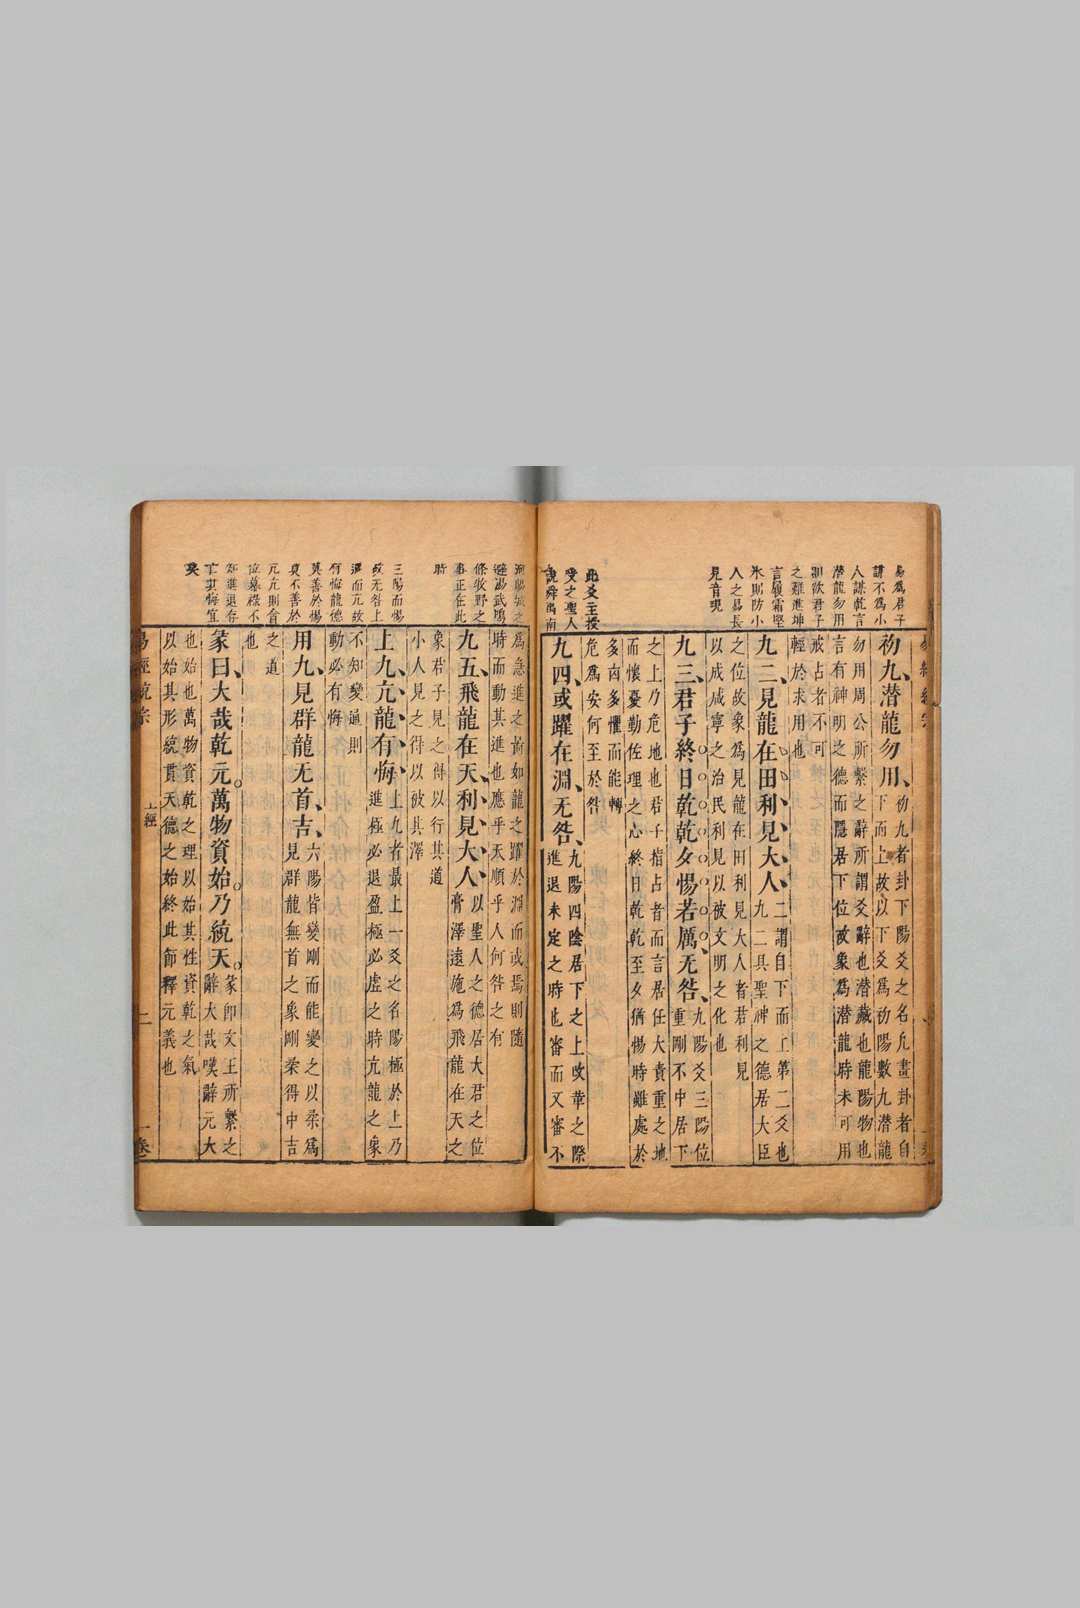 易爲君子
謀不爲小
人謀乾言
潛龍勿用
訓欲君子
之難進坤
言履霜堅
氷則防小
人之易長
見音現
此爻主授
受之聖人
說舜禹南
初九潛龍勿用
初九者卦下陽爻之名凢畫卦者自
下而上故以下爻爲初陽數九潛龍
勿用周公所繫之辭所謂爻辭也潛藏也龍陽物也
言有神明之德而隱居下位故象爲潛龍時未可用
戒占者不可
輕於求用也
九二見龍在田利見大人
二謂自下而上第二爻也
九二具聖神之德居大臣
之位故象爲見龍在田利見大人者君利見
以成咸寧之治民利見以被文明之化也
九三君子終日乾乾夕惕若厲无咎
九陽爻三陽位
重剛不中居下
之上乃危地也君子指占者而言居任大責重之地
而懷憂勤佐理之心終日乾乾至夕猶惕時雖處於
多凶多懼而能轉
危爲安何至於咎
九四或躍在淵无咎
九陽四陰居下之上改革之際
進退未定之時也審而又審不
爲急進之啚如龍之躍於淵而或焉則隨
時而動其進也應乎天順乎人何咎之有
九五飛龍在天利見大人
以聖人之德居大君之位
膏澤遠施爲飛龍在天之
象君子見之得以行其道
小人見之得以被其澤
上九亢龍有悔
上九者最上一爻之名陽極於上乃
進極必退盈極必虛之時亢龍之象
不知變通則
動必有悔
用九見群龍无首吉
六陽皆變剛而能變之以柔爲
見群龍無首之象剛柔得中吉
之道
也
彖曰大哉乾元萬物資始乃統天
彖卽文王所繫之
辭大哉嘆辭元大
也始也萬物資乾之理以始其性資乾之氣
以始其形統貫天德之始終此節釋元義也
條牧野之
事正在此
時
三陽而惕
故无咎上
有悔龍德
莫善於惕
莫不善於
亢亢則貪
位慕祿不
知進退存
亡其悔宜
矣
易經統宗
上經
二
一卷